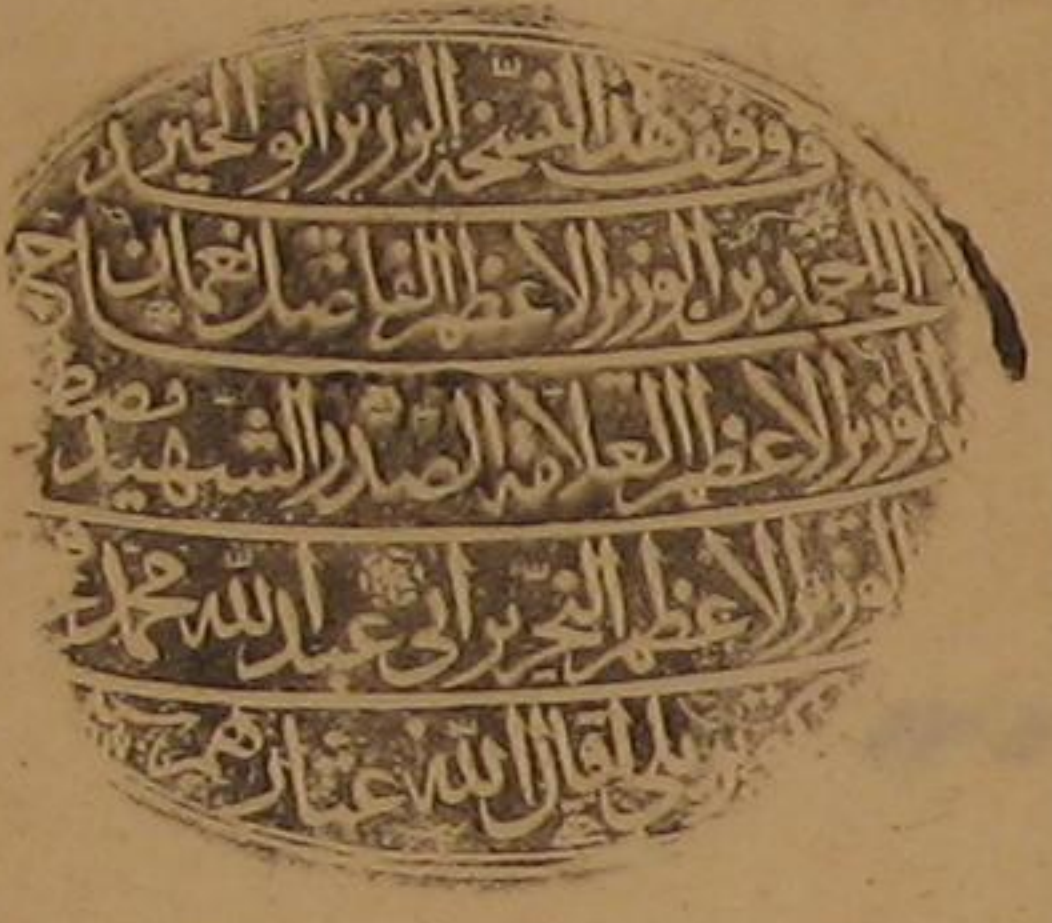 وقف هذا النسخة الوزير ابو الخير
الحاج احمد بن الوزير الاعظم الفاضل نعمان
الوزير الاعظم العلامة الصدر الشهيد
الوزير الاعظم النحرير ابي عبد الله محمد
اقال الله عثارهم